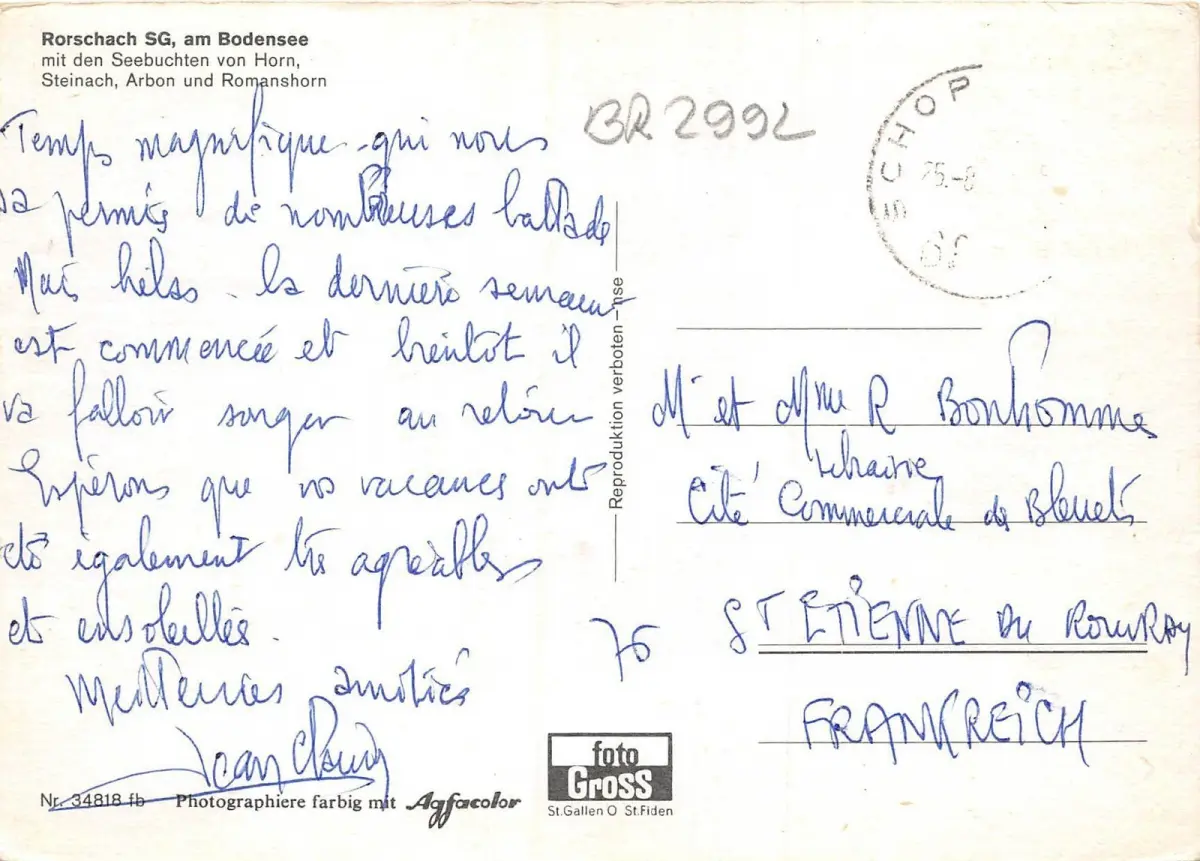 Rorschach SG, am Bodensee
mit den Seebuchten von Horn,
Steinach, Arbon und Romanshorn
Temps magnifique qui nous
a permis de nombreuses ballade
Mais hélas - la dernière semaine
est commencée et bientôt il
va falloir songer au retour
Espérons que vos vacances ont
été également très agréables
et ensoleillés.
Meilleures amitiés
Jean
Nr. 34818 fb Photographiere farbig mit Agfacolor
Reproduktion verboten
foto
Gross
St.Gallen O St.Fiden
BR 2992
SCHOP
25.-8
Mr et Mme R Bonhomme
Librairie
Cité Commerciale de Bleuets
76 ST ETIENNE DU ROUVRAY
FRANKREICH